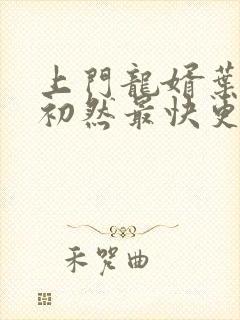 上門龍婿葉
初然最快更
禾咒曲